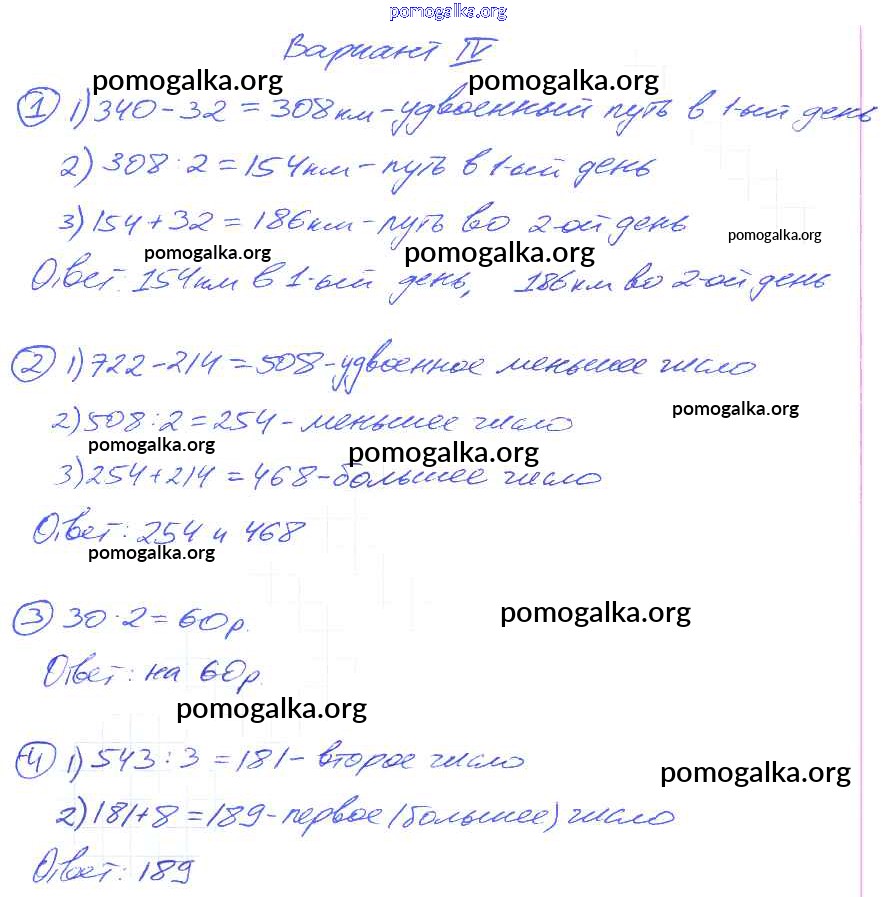 pomogalka.org
Вариант IV
pomogalka.org pomogalka.org
1 1) 340 - 32 = 308 км - удвоенный путь в 1-ый день
2) 308 : 2 = 154 км - путь в 1-ый день
3) 154 + 32 = 186 км - путь во 2-ой день
pomogalka.org
pomogalka.org pomogalka.org
Ответ: 154 км в 1-ый день, 186 км во 2-ой день
2 1) 722 - 214 = 508 - удвоенное меньшее число
pomogalka.org
2) 508 : 2 = 254 - меньшее число
pomogalka.org pomogalka.org
3) 254 + 214 = 468 - большее число
Ответ: 254 и 468
pomogalka.org
3 30 · 2 = 60 р.
pomogalka.org
Ответ: на 60 р.
pomogalka.org
4 1) 543 : 3 = 181 - второе число
pomogalka.org
2) 181 + 8 = 189 - первое (большее) число
Ответ: 189